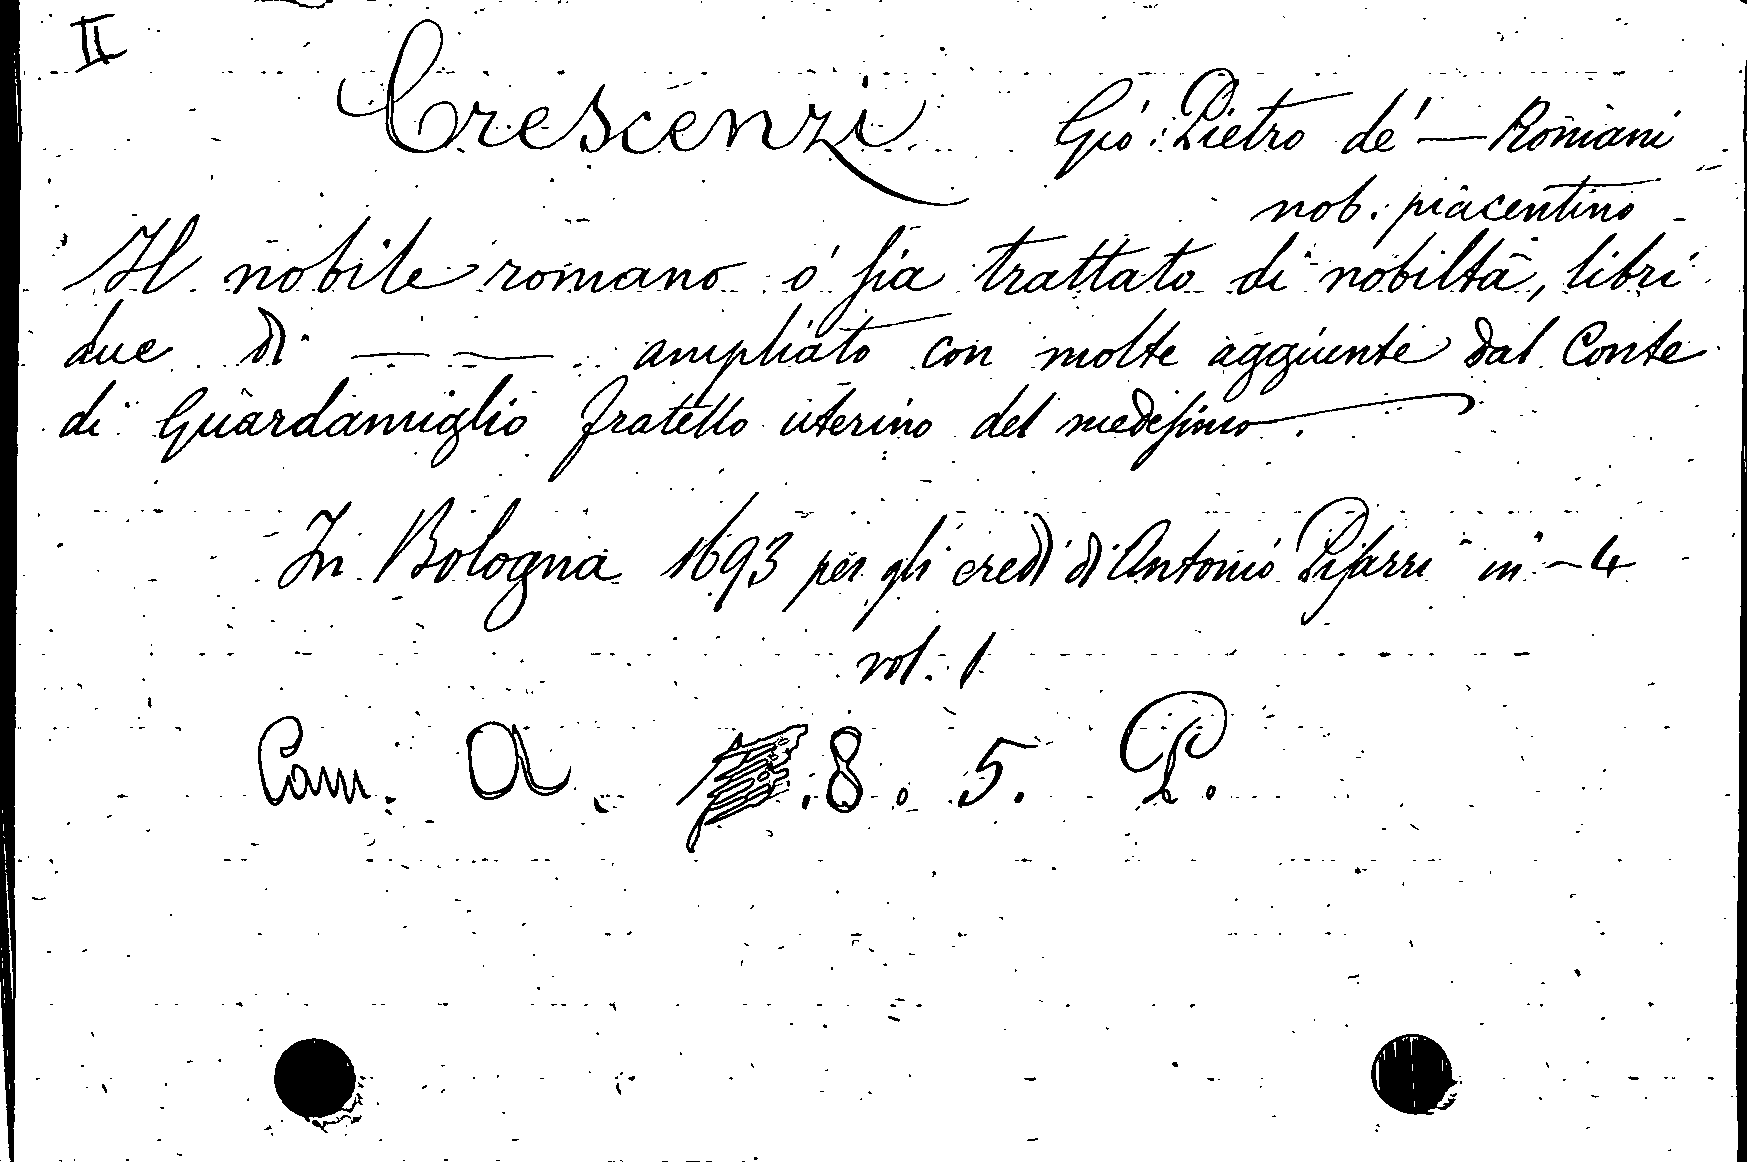 II
Crescenzi Gió: Pietro dé — Romani
nob. piacentino
Il nobile romano ó sia trattato di nobiltà, libri
due di — — ampliato con molte aggiunte dal Conte
di Guardamiglio fratello uterino del medesimo.
In Bologna 1693 per gli eredi di Antonio Pisarri in-4
vol. 1
Cam. A. 8. 5. P.